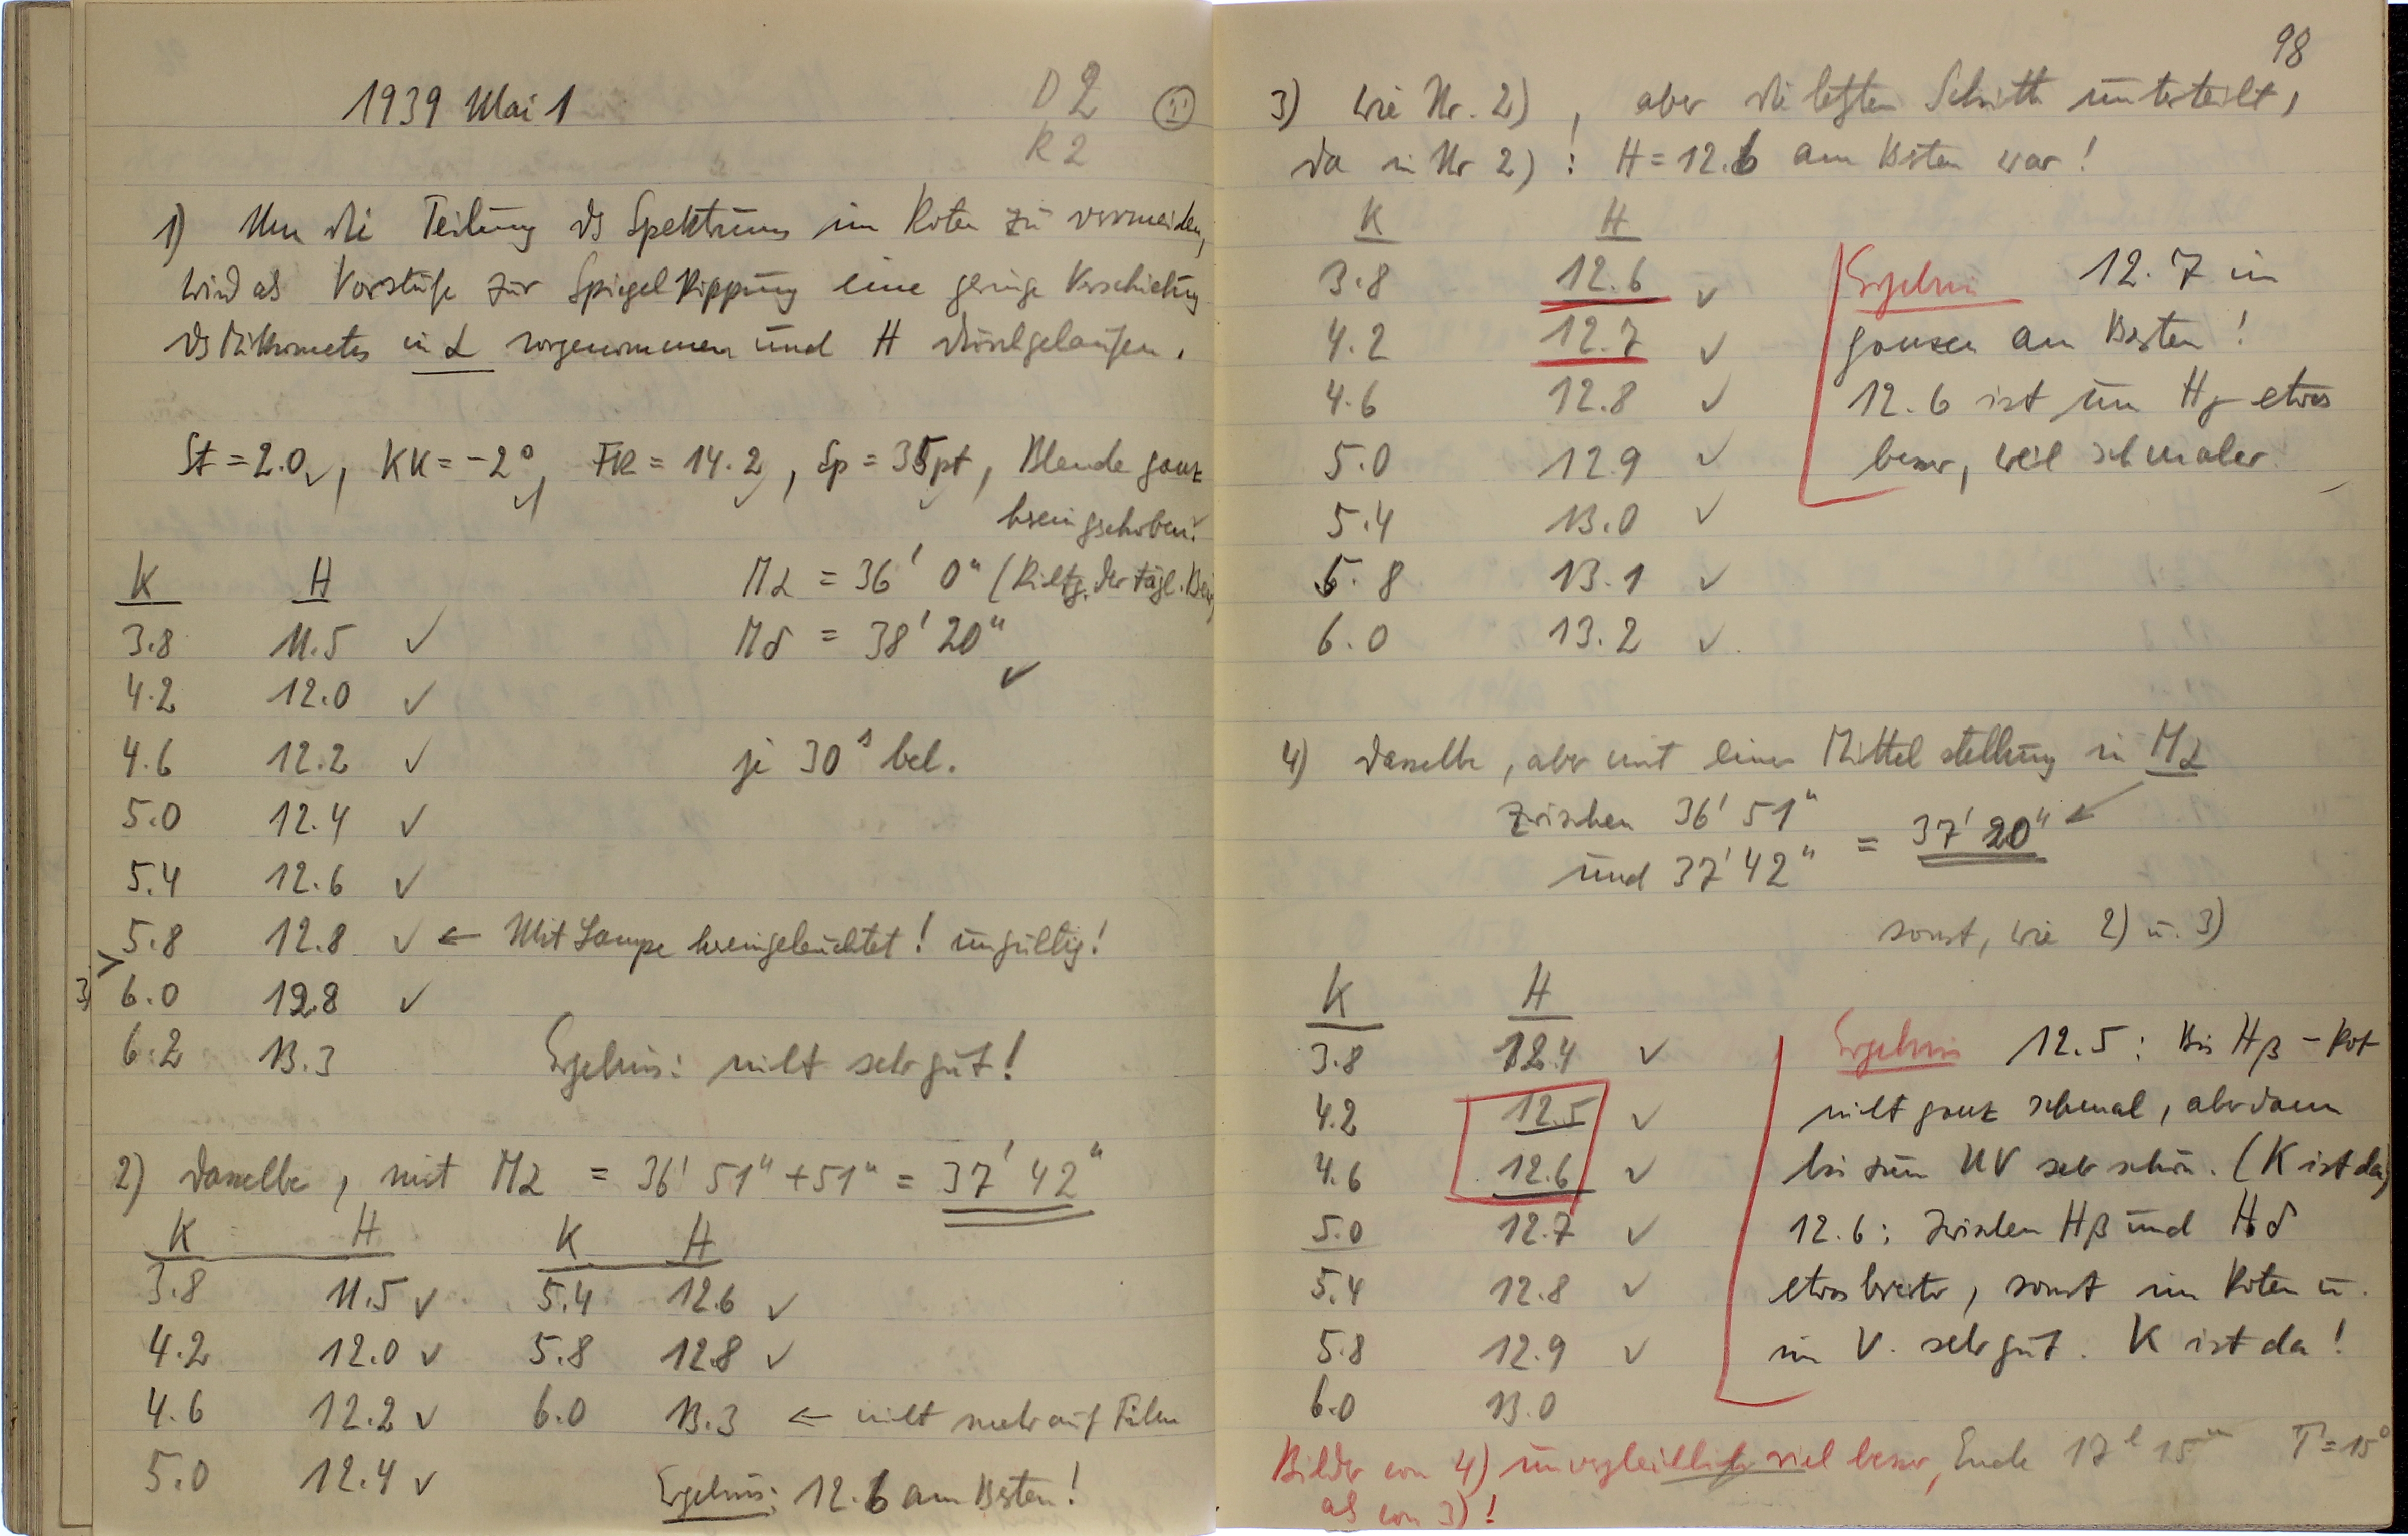 1939 Mai 1
D 2
R 2
1) Um die Teilung ds Spektrums im Roten zu vermeiden,
wird als Vorstufe zur Spiegelkippung eine geringe Verschiebung
ds Mikrometers in α vorgenommen und H durchgelaufen.
St = 2.0 ✓, KK = -2° ✓, FR = 14.2 ✓, Sp = 35pt, Blende ganz
hereingeschoben ✓
Mα = 36' 0" (Richtg. der tägl. Bew.)
Mδ = 38' 20" ✓
je 30s bel.
K H
3.8 11.5 ✓
4.2 12.0 ✓
4.6 12.2 ✓
5.0 12.4 ✓
5.4 12.6 ✓
5.8 12.8 ✓ ← Mit Lampe hereingeleuchtet! ungültig!
6.0 12.8 ✓
6.2 13.3
Ergebnis: nicht sehr gut!
2) Dasselbe, mit Mα = 36' 51" + 51" = 37' 42"
K H K H
3.8 11.5 ✓ 5.4 12.6 ✓
4.2 12.0 ✓ 5.8 12.8 ✓
4.6 12.2 ✓ 6.0 13.3 ← nicht mehr auf Film
5.0 12.4 ✓
Ergebnis: 12.6 am Besten!
98
3) Wie Nr. 2), aber die letzten Schritte unterteilt,
da in Nr 2): H = 12.6 am Besten war!
K H
3.8 12.6 ✓
4.2 12.7 ✓
4.6 12.8 ✓
5.0 12.9 ✓
5.4 13.0 ✓
5.8 13.1 ✓
6.0 13.2 ✓
Ergebnis 12.7 im
ganzen am Besten!
12.6 ist um Hγ etwas
besser, weil schmaler
4) Dasselbe, aber mit einer Mittelstellung in Mα
zwischen 36' 51"
und 37' 42" = 37' 20"
sonst, wie 2) u. 3)
K H
3.8 12.4 ✓
4.2 12.5 ✓
4.6 12.6 ✓
5.0 12.7 ✓
5.4 12.8 ✓
5.8 12.9 ✓
6.0 13.0
Ergebnis 12.5: Bis Hβ - Rot
nicht ganz schmal, aber dann
bis zum UV sehr schön. (K ist da)
12.6: zwischen Hβ und Hδ
etwas breiter, sonst im Roten u.
im V. sehr gut. K ist da!
Bilder von 4) unvergleichlich viel besser,
als von 3)!
Ende 17h 15m T = 15°